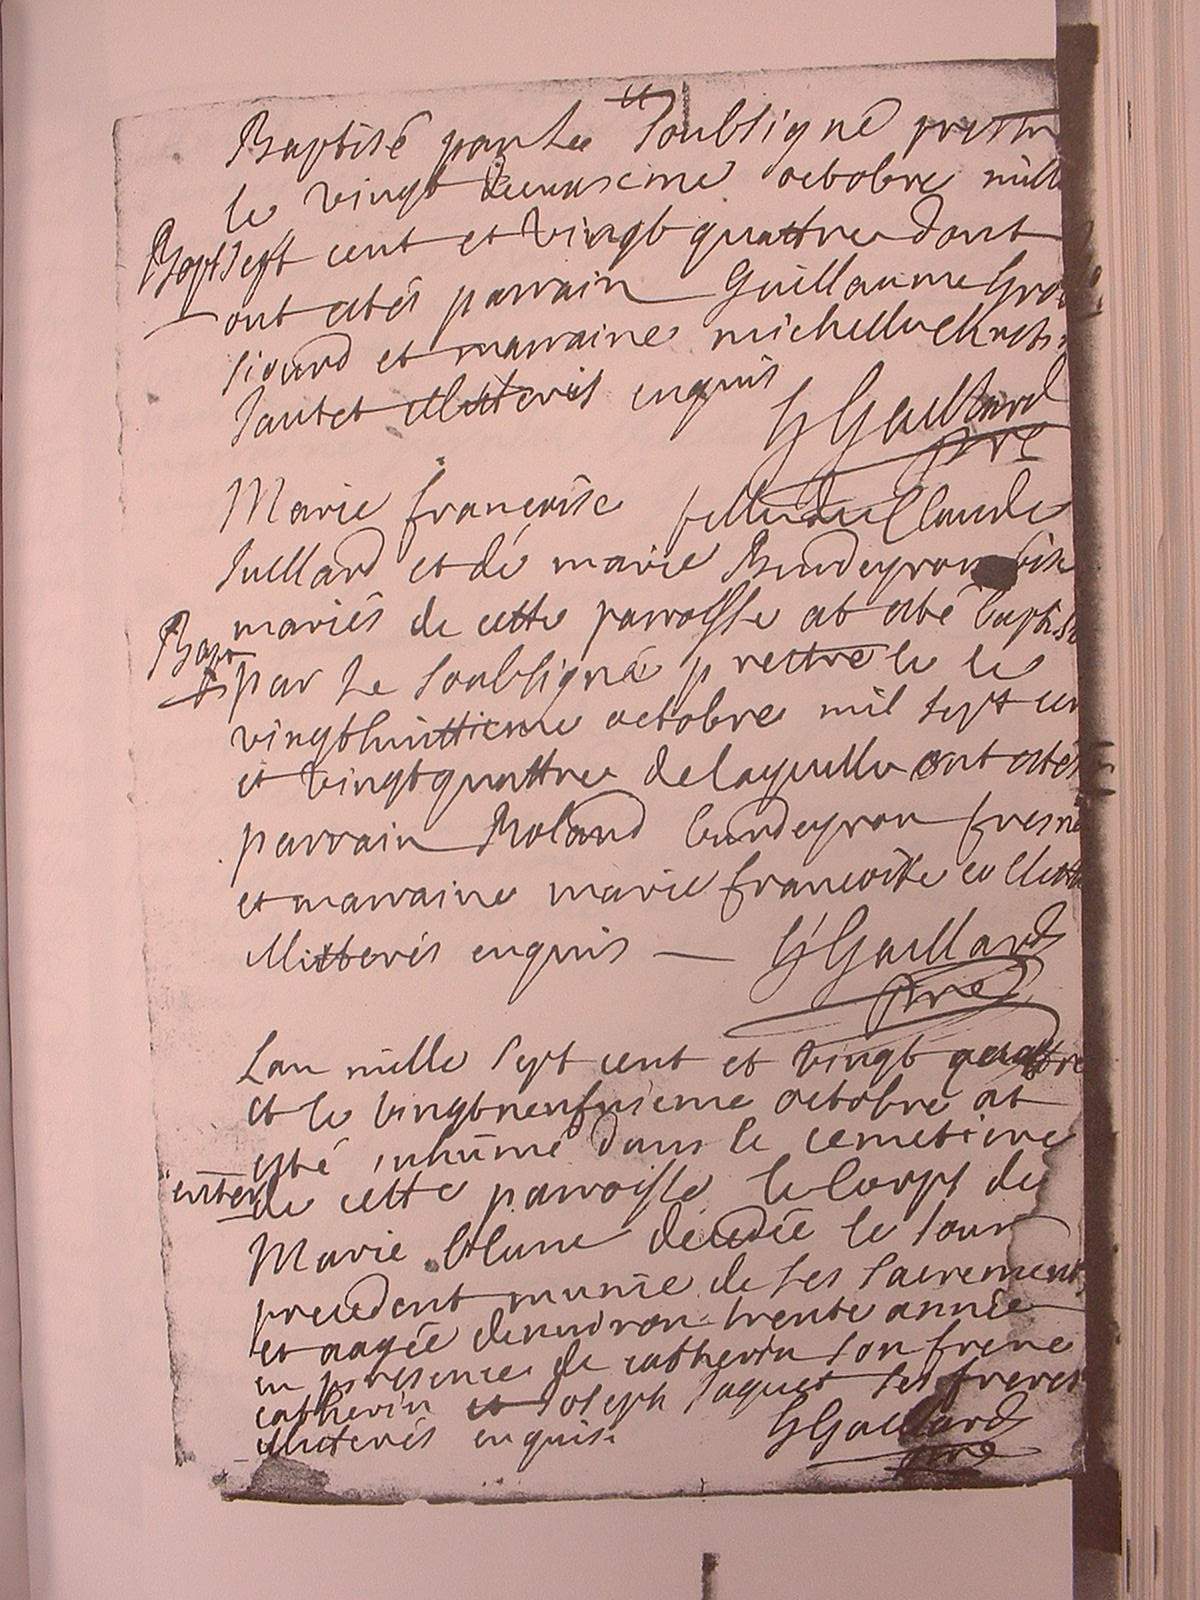 Baptisé par Le Soubsigné prestre
le vingt deuxsieme octobre mille
Bapt sept cent et vingt quattre dont
ont estés parrain Guillaume
et marraine michelle
illitterés enquis
G Gaillard
pre
Marie francoise fille de Claude
Juillard et de marie Burdeyron
mariés de cette parroisse at esté baptisé
Bapt
par Le Soubsigné prettre le le
vingthuittieme octobre mil sept cen
et vingtquattre de laquelle ont estés
parrain Roland burdeyron
et marraine marie francoise
illitterés enquis — G Gaillard
pre
Lan mille sept cent et vingt quattre
et le vingtneufvieme octobre at
esté inhumé dans le cemetiere
enter de cette parroisse le Corps de
Marie décedée le Jour
precedent munie de ses sacrements
et aagée denviron trente année
en presence de catherin son frere
catherin et Joseph Jaquet ses freres
illiterés enquis. G Gaillard
pre